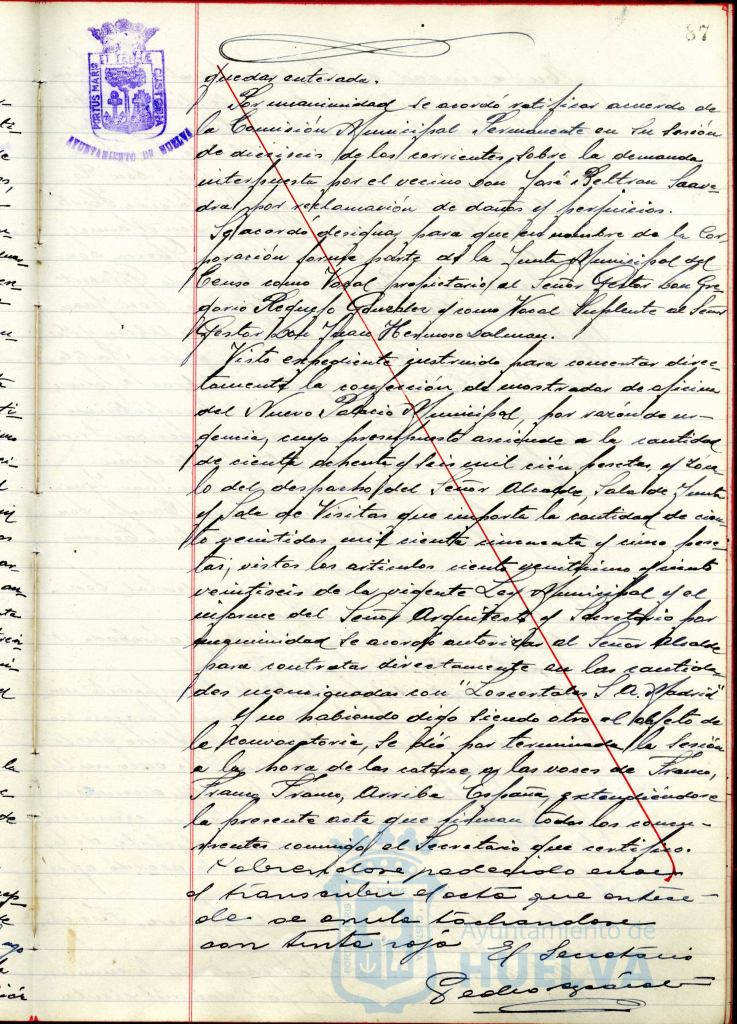 87
ET TERRE CUSTODIA
PORTUS MARIS
AYUNTAMIENTO DE HUELVA
quedar enterada.
Por unanimidad se acordó ratificar acuerdo de
la Comisión Municipal Permanente en su sesión
de dieciseis de los corrientes, sobre la demanda
interpuesta por el vecino Don José Beltran Saave-
dra por reclamación de daños y perjuicios.
Se acordó designar para que en nombre de la Cor-
poración forme parte de la Junta Municipal del
Censo como Vocal propietario al Señor Gestor Don Gre-
gorio Requejo Gonzalez y como Vocal Suplente al Señor
Gestor Don Juan Hermoso Dalman.
Visto expediente instruido para concertar direc-
tamente la confección de mostrador de oficina
del Nuevo Palacio Municipal, por razón de ur-
gencia, cuyo presupuesto asciende a la cantidad
de ciento ochenta y seis mil cien pesetas, y
del despacho del Señor Alcalde, Sala de Junta
y Sala de Visitas que importa la cantidad de cien-
to veintidos mil ciento cincuenta y cinco pese-
tas; vistos los articulos ciento veinticinco y ciento
veintiseis de la vigente Ley Municipal y el
informe del Señor Arquitecto y Secretario por
unanimidad se acordó autorizar al Señor Alcalde
para contratar directamente en las cantida-
des con "Loscertales S.A. Madrid"
Y no habiendo sido siendo otro el objeto de
la convocatoria, se dió por terminada la sesión
a la hora de las catorce, a las voces de Franco,
Franco, Franco, Arriba España, extendiéndose
la presente acta que firman todos los concu-
rrentes conmigo el Secretario que certifico.
Habiendose padecido error
al transcribir el acta que antece-
de se anula tachandose
con tinta roja El Secretario
Pedro
Ayuntamiento de
HUELVA